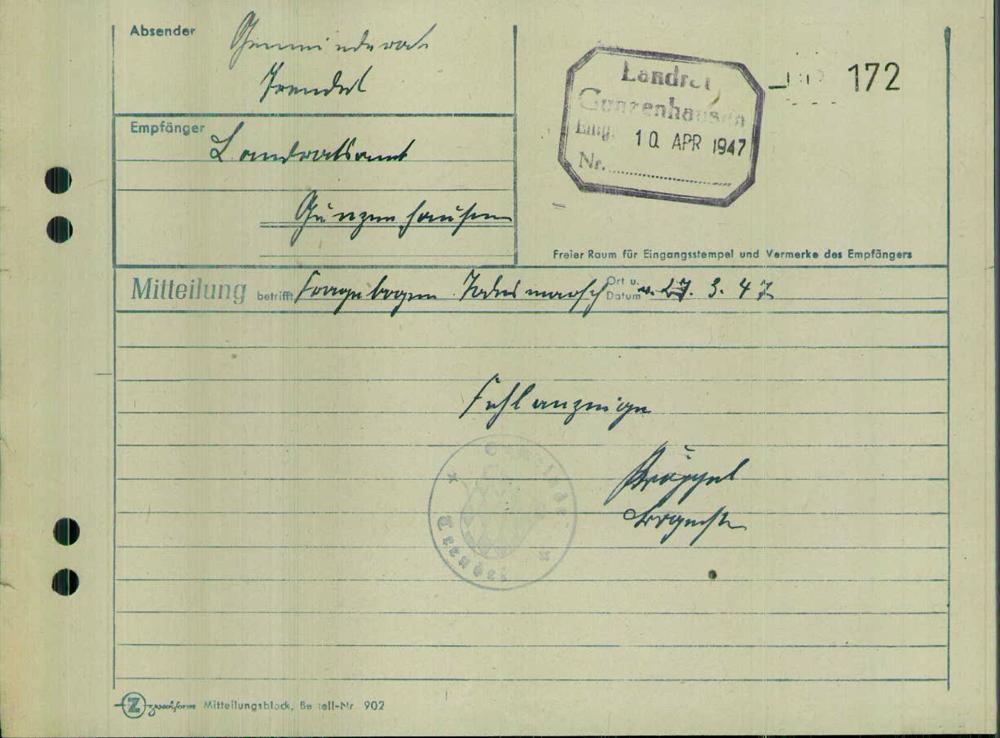 Absender
Gemeinderat
Trendel
Empfänger
Landratsamt
Gunzenhausen
Landrat
Gunzenhausen
Eing. 10 APR 1947
Nr.
172
Freier Raum für Eingangsstempel und Vermerke des Empfängers
Mitteilung betrifft Fragebogen Todesmarsch Ort u. Datum v. 27. 3. 47
Fehlanzeige
Bürgmstr
Gemeinde
Trendel
Z zweckform Mitteilungsblock, Bestell-Nr 902